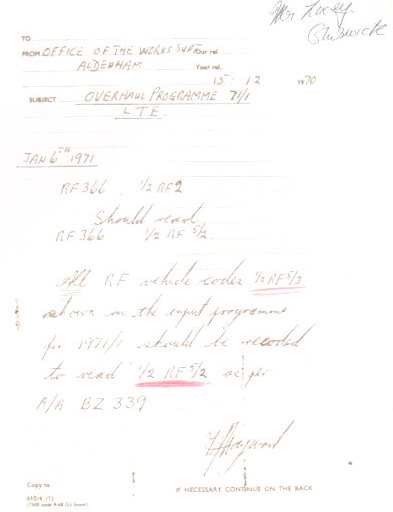 Mr Lacey,
Chiswick
TO
FROM OFFICE OF THE WORKS SUPT. Our ref.
ALDENHAM Your ref.
15 - 12 1970
SUBJECT OVERHAUL PROGRAMME 71/1
LTE
JAN 6TH 1971
RF 366 1/2 RF2
Should read
RF 366 1/2 RF 5/2.
All RF vehicle codes 1/2 RF 5/3
shown on the input programme
for 1971/1 should be recoded
to read 1/2 RF 5/2 as per
A/A BZ 339
Hayward
Copy to
IF NECESSARY CONTINUE ON THE BACK
610/4 (1)